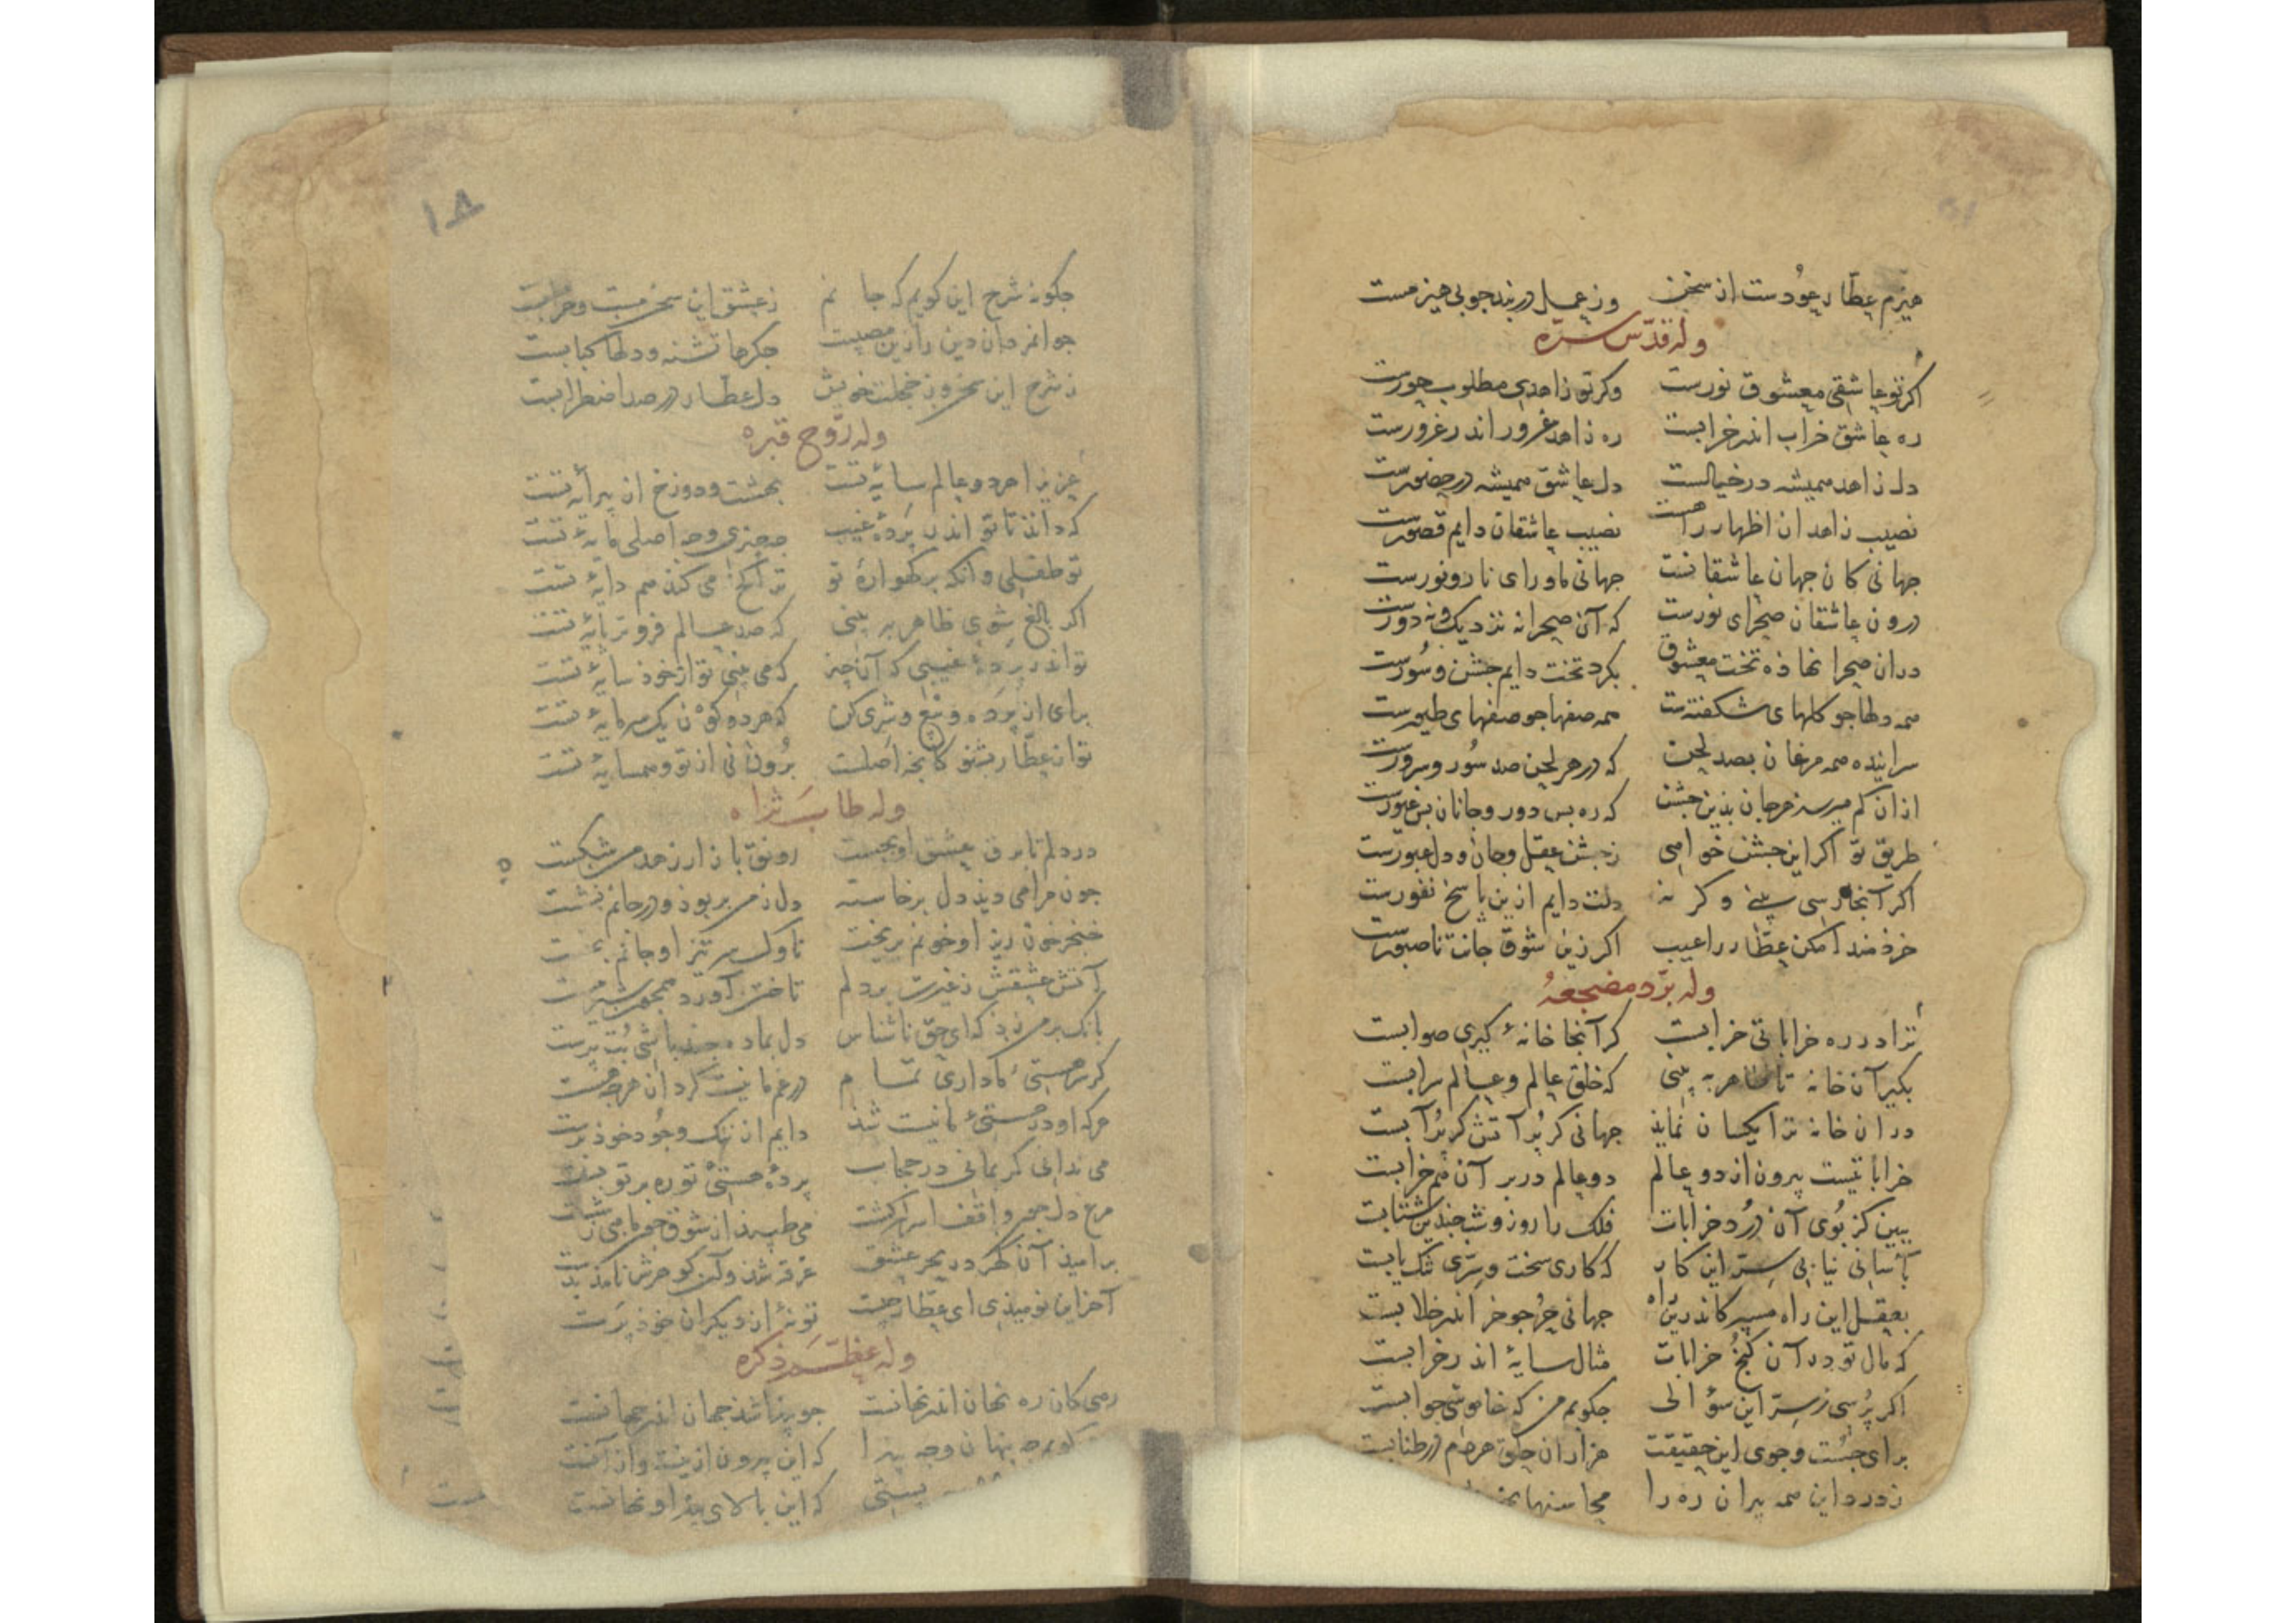 هیزم عطار عودست از سخن وز عمل در بند چوبی هیزمست
وله قدّس سرّه
اکر تو عاشقی معشوق نورست وکر تو زاهدی مطلوب حورست
ره عاشق خراب اندر خرابست ره زاهد غرور اندر غرورست
دل زاهد همیشه در خیالست دل عاشق همیشه در حضورست
نصیب زاهدان اظهار راهست نصیب عاشقان دایم قصورست
جهانی کان جهان عاشقانست جهانی ماورای نار و نورست
درون عاشقان صحرای نورست که آن صحرا نه نزدیک و نه دورست
دران صحرا نهاده تخت معشوق بکرد تخت دایم جشن و سورست
همه دلها جو کلهای شکفتست همه صفها جو صفهای طیورست
سراینده همه مرغان بصد لحن که در هر لحن صد سور و سرورست
ازان کم میرسد هر جان بذین جشن که ره بس دور و جانان بس غیورست
طریق تو اکر این جشن خواهی زجشن عقل و جان و دل عبورست
اکر آنجا رسی بینی وکر نه دلت دایم ازین پاسخ نفورست
خردمندا مکن عطار را عیب اکر زین شوق جانت ناصبورست
وله برّد مضجعهُ
ترا در ره خراباتی خرابست کر آنجا خانهٔ کیری صوابست
بکیر آن خانه تا ظاهر به بینی که خلق عالم و عالم سرابست
دران خانه ترا یکسان نماید جهانی کر پر آتش کر پر آبست
خراباتیست بیرون از دو عالم دو عالم در بر آن هم خرابست
ببین کز بوی آن درد خرابات فلک را روز و شب جندین شتابست
بآسانی نیابی سرّ این کار که کاری سخت و سرّی تنک یابست
بعقل این راه مسپر کاندرین راه جهانی خر جو خر اندر خلابست
که مال تو درآن کنج خرابات مثال سایهٔ اندر خرابست
اکر پرسی ز سرّ این سؤالی جکویم من که خاموشی جوابست
برای جست و جوی این حقیقت هزاران حلق هر دم در طنابست
ز درد این همه پیران ره را محاسنها
۱۸
جکونه شرح این کویم که جانم زعشق این سخن مست و خرابست
جوانمردان دین را زین مصیبت جکرها تشنه و دلها کبابست
ز شرح این سخن وز خجلت خویش دل عطار در صد اضطرابست
وله روّح قبره
عزیزا هر دو عالم سایهٔ تست بهشت و دوزخ از پیرایهٔ تست
که داند تا تو اندر پردهٔ غیب جه جیزی و جه اصلی مایهٔ تست
تو طفلی وانکه در کهوارهٔ تو ترا کج می کند هم دایهٔ تست
اکر بالغ شوی ظاهر به بینی که صد عالم فزونتر پایهٔ تست
تو اندر پردهٔ غیبی که آن جیز که می بینی تو از خود سایهٔ تست
برای از پرده و بیع و شری کن که هر دو کون یک سرمایهٔ تست
تو از عطار بشنو کانجه اصلست برون نی از تو و همسایهٔ تست
وله طاب ثراه
در دلم تا برق عشق او بجست رونق بازار زهد من شکست
جون مرا می دید دل برخاسته دل ز من بربود و در جانم نشست
خنجر خون ریز او خونم بریخت ناوک سر تیز او جانم بخست
آتش عشقش ز غیرت بر دلم تاختن آورد همجون شیر مست
بانک بر من زد که ای حق ناشناس دل بما ده جند باشی بت پرست
کر سر هستی ما داری تمام در غم ما نیست کردان هرجه هست
هرکه او در هستی ما نیست شد دایم از ننک وجود خود برست
می ندانی کز بمانی در حجاب پردهٔ هستی تو ره بر تو بست
مرغ دل جون واقف اسرار کشت می طپد از شوق جون ماهی بشست
بر امید آن کهر در بحر عشق غرقه شد وآن کوهرش نامد بدست
آخر این نومیدی ای عطار جیست تو نهٔ از دیکران خود پرست
وله عظّم ذکره
رهی کان ره نهان اندر نهانست جو پیدا شد جهان اندر جهانست
کویم جه پنهان و جه پیدا که این بیرون ازینست و از آنست
پستی که این بالای پیدا و نهانست